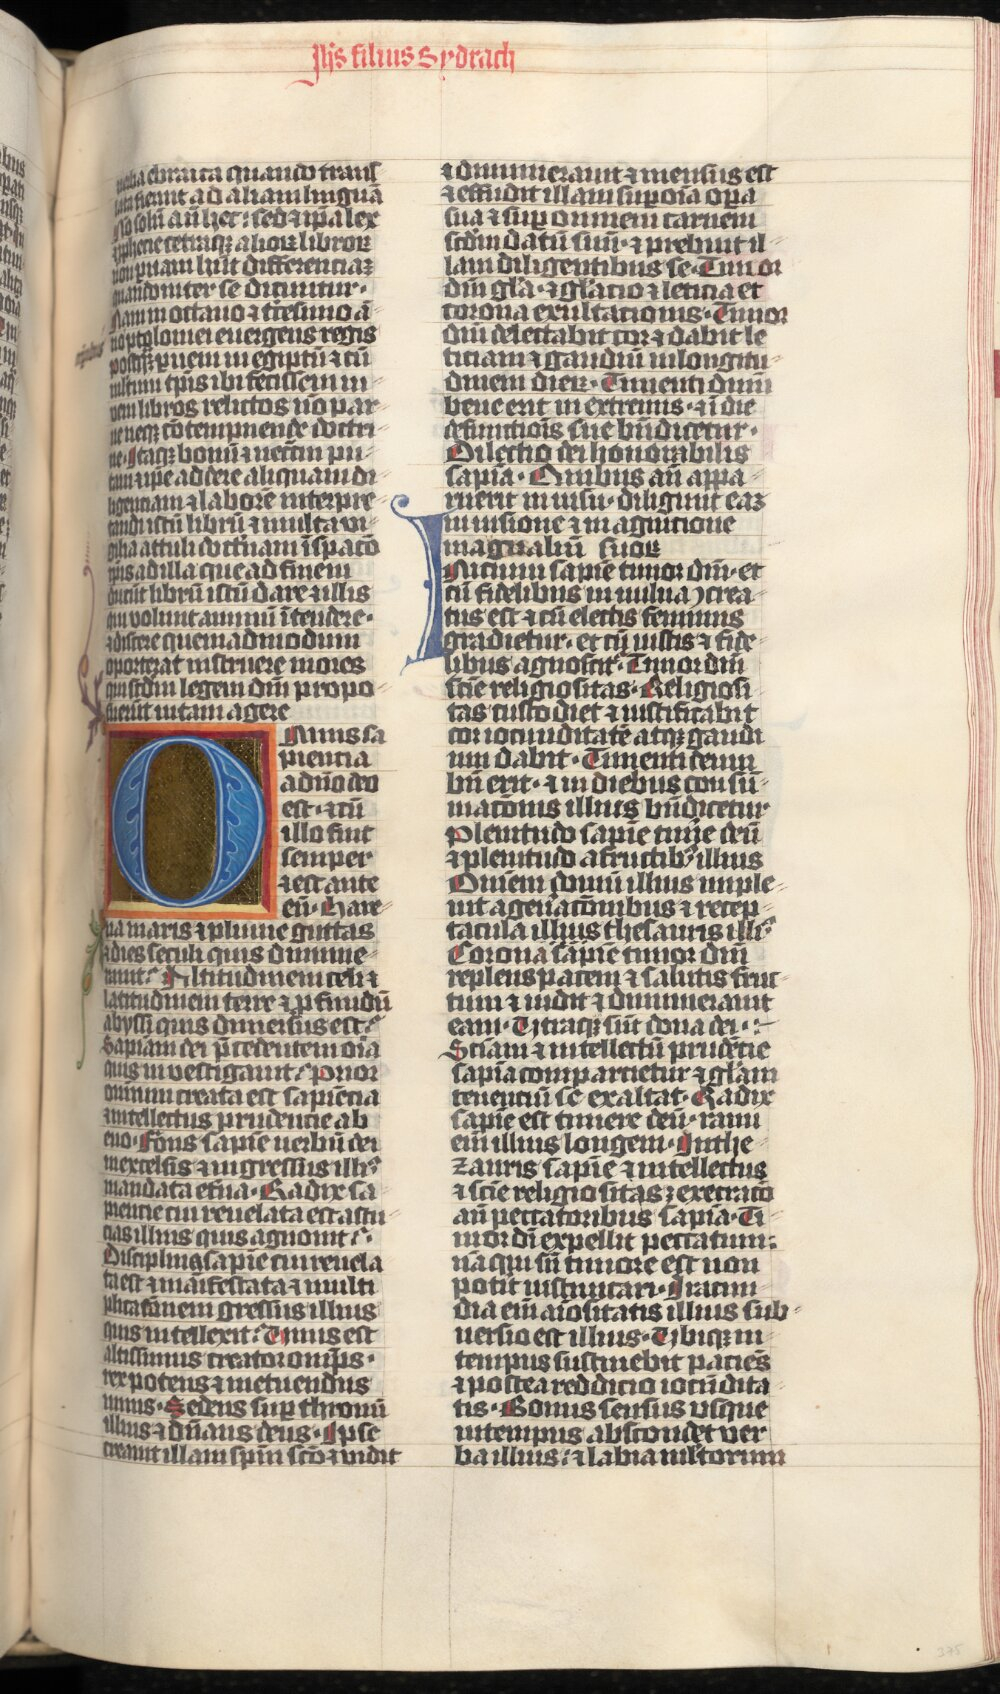 Jhs filius Sydrach
uerba ebraica quando trans
lata fuerint ad aliam linguā
Nō solū aūt hec: sed & ipa lex
& pphecie ceteraqꝫ alioꝝ libroꝝ
non puam hūt differenciaꝫ
quando inter se dicuntur·
Nam in octauo & t̄cesimo ā
no ptolomei euergens regis
postqꝫ pueni in egiptū & cū
multum tp̄is ibi fecissem in
ueni libros relictos nō par
ue neqꝫ cōtempnende doctri
ne· Itaqꝫ bonū & necm̄ pu
taui & ipe addere aliquam di
ligenciam & laborē interpre
tandi istū librū & multa vi
gilia attuli doctⁱnam ī spacō
tp̄is ad illa que ad finem
ducūt librū istū dare & illis
qui volunt animū ītendere·
& discere quemadmodum
oporteat instruere mores
qui scdm legem dn̄i propo
suerūt uitam agere
OMnis sa
piencia
a dn̄o deo
est· & cū
illo fuit
semper
& est ante
eū· Hare
na maris & pluuie guttas
& dies seculi quis dinume
rauit? Altitudinem celi &
latitudinem terre & pfundū
abyssi quis dimensus est?
Sapiam dei p̄cedentem oīa
quis inuestigauit? Prior
omnium creata est sapiencia
& intellectus prudencie ab
euo· Fons sapie uerbū dei
in excelsis & ingressus illiꝰ
mandata et̄na· Radix sa
piencie cui reuelata est astu
cias illius quis agnouit?
Disciplina sapie cui reuela
ta est & manifestata & multi
plicatōnem gressus illius
quis intellexit? Vnus est
altissimus creator omp̄s·
rex potens & metuendus
nimis· Sedens sup thronū
illius & dn̄ans deus· Ipse
creauit illam spū scō & uidit
& dinumerauit & mensus est
& effudit illam sup oīa opa
sua & sup omnem carnem
scdm datū suū· & prebuit il
lam diligentibus se· Timor
dn̄i gl̄a· & gl̄acio & leticia et
corona exultacionis· Timor
dn̄i delectabit cor & dabit le
ticiam & gaudiū in longitu
dinem dieꝝ· Timenti dn̄m
bene erit in extremis· & ī die
defunctiōis sue bn̄dicetur·
Dilectio dei honorabilis
sapīa· Quibus aūt appa
ruerit in uisu· diligunt eaꝫ
in uisione & in agnitione
magnaliū suoꝝ
INicium sapie timor dn̄i· et
cū fidelibus in uulua ↄcrea
tus est & cū electis feminis
gradietur· et cū iustis & fide
libus agnoscit̄· Timor dn̄i
scie religiositas· Religiosi
tas custodiet & iustificabit
cor iocunditatē atqꝫ gaudi
um dabit· Timenti deum
bn̄ erit· & in diebus consū
macōnis illius bn̄dicetur·
Plenitudo sapie tim̄e deū
& plenitudo a fructibꝰ illius
Omnem domū illius imple
uit a gen̄acōnibus & recep
tacula illius thesauris illiꝰ
Corona sapie timor dn̄i
replens pacem & salutis fruc
tum & uidit & dinumerauit
eam· Vtraqꝫ sūt dona dei·
Sciam & intellectū prudēcie
sapīa compartietur & gl̄am
tenentiū se exaltat· Radix
sapie est timere deū· rami
eiⁱ illius longeui· In the
zauris sapie & intellectus
& scie religiositas: execracō
aūt peccatoribus sapīa· Ti
mor dī expellit peccatum:
nā qui sn̄ timore est non
potit iustificari· Iracun
dia eiⁱ aīositatis illius sub
uersio est illius· Vsqꝫ in
tempus sustinebit paciēs
& postea reddicio iocūdita
tis· Bonus sensus usque
in tempus abscondet ver
ba illius: & labia mltorum
375